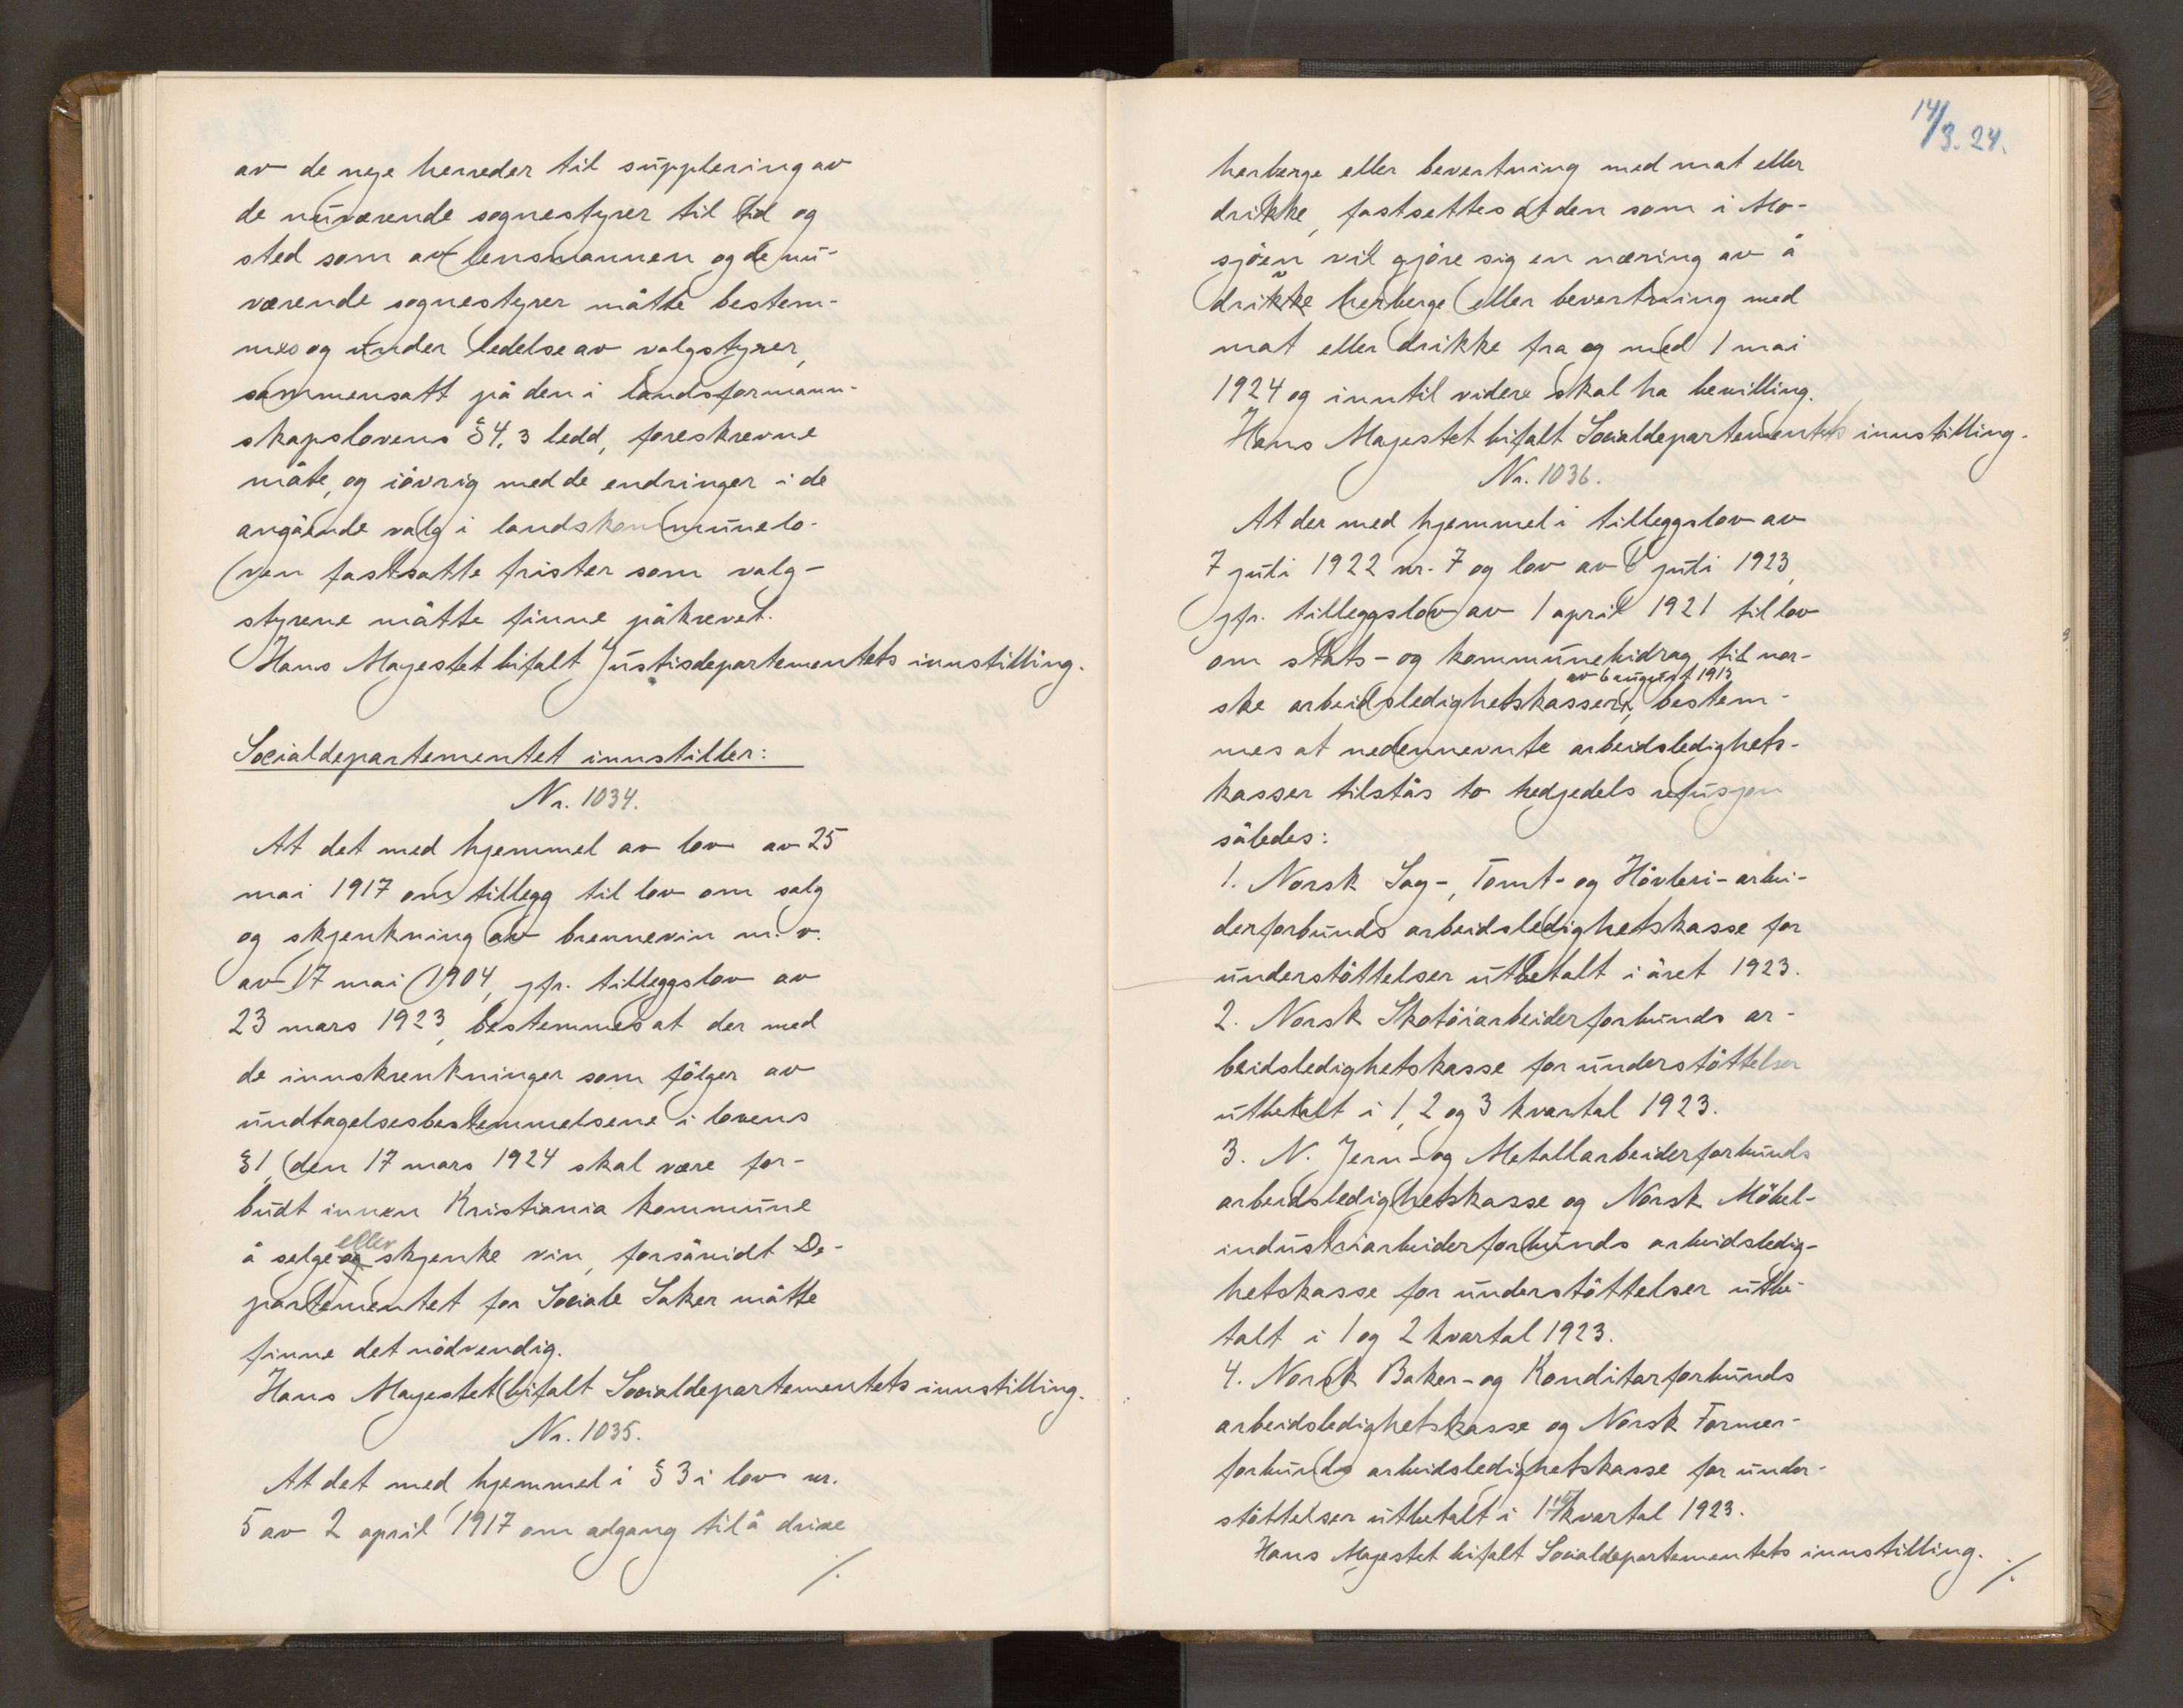 av de nye herreder til supplering av
de nuværende sognestyrer til tid og
sted som av lensmannen og de nu-
værende sognestyrer måtte bestem-
mes og under ledelse av valgstyrer,
sammensatt på den i landsformann-
skapslovens §4, 3 ledd, foreskrevne
måte, og iövrig med de endringer i de
angående valg i landskommunelo-
ven fastsatte frister som valg-
styrene måtte finne påkrevet.
Hans Majestet bifalt Justisdepartementets innstilling.
Socialdepartementet innstiller:
Nr. 1034.
At det med hjemmel av lov av 25
mai 1917 om tillegg til lov om salg
og skjenkning av brennevin m. v.
av 17 mai 1904, jfr. tilleggslov av
23 mars 1923, bestemmes at der med
de innskrenkninger som fölger av
undtagelsesbestemmelsene i lovens
§1, den 17 mars 1924 skal være for-
budt innen Kristiania kommune
å selge og eller skjenke vin, forsåvidt De-
partementet for Sociale Saker måtte
finne det nödvendig.
Hans Majestet bifalt Socialdepartementets innstilling.
Nr. 1035.
At det med hjemmel i § 3 i lov nr.
5 av 2 april 1917 om adgang til å drive
./.
14/3. 24.
herberge eller bevertning med mat eller
drikke, fastsettes at den som i Mo-
sjöen vil gjöre sig en næring av å
drive herberge eller bevertning med
mat eller drikke fra og med 1 mai
1924 og inntil videre skal ha bevilling.
Hans Majestet bifalt Socialdepartementets innstilling.
Nr. 1036.
At der med hjemmel i tilleggslov av
7 juli 1922 nr. 7 og lov av 6 juli 1923,
jfr. tilleggslov av 1 april 1921 til lov
om stats- og kommunebidrag til nor-
av 6 august 1915
ske arbeidsledighetskasser, bestem-
mes at nedennevnte arbeidsledighets-
kasser tilstås to tredjedels refusjon
således:
1. Norsk Sag-, Tomt- og Hövleri-arbei-
derforbunds arbeidsledighetskasse for
understöttelser utbetalt i året 1923.
2. Norsk Skotöiarbeiderforbunds ar-
beidsledighetskasse for understöttelser
utbetalt i 1, 2 og 3 kvartal 1923.
3. N. Jern- og Metallarbeiderforbunds
arbeidsledighetskasse og Norsk Möbel-
industriarbeiderforbunds arbeidsledig-
hetskasse for understöttelser utbe-
talt i 1 og 2 kvartal 1923.
4. Norsk Baker- og Konditorforbunds
arbeidsledighetskasse og Norsk Former-
forbunds arbeidsledighetskasse for under-
stöttelser utbetalt i 1 kvartal 1923.
Hans Majestet bifalt Socialdepartementets innstilling.
./.